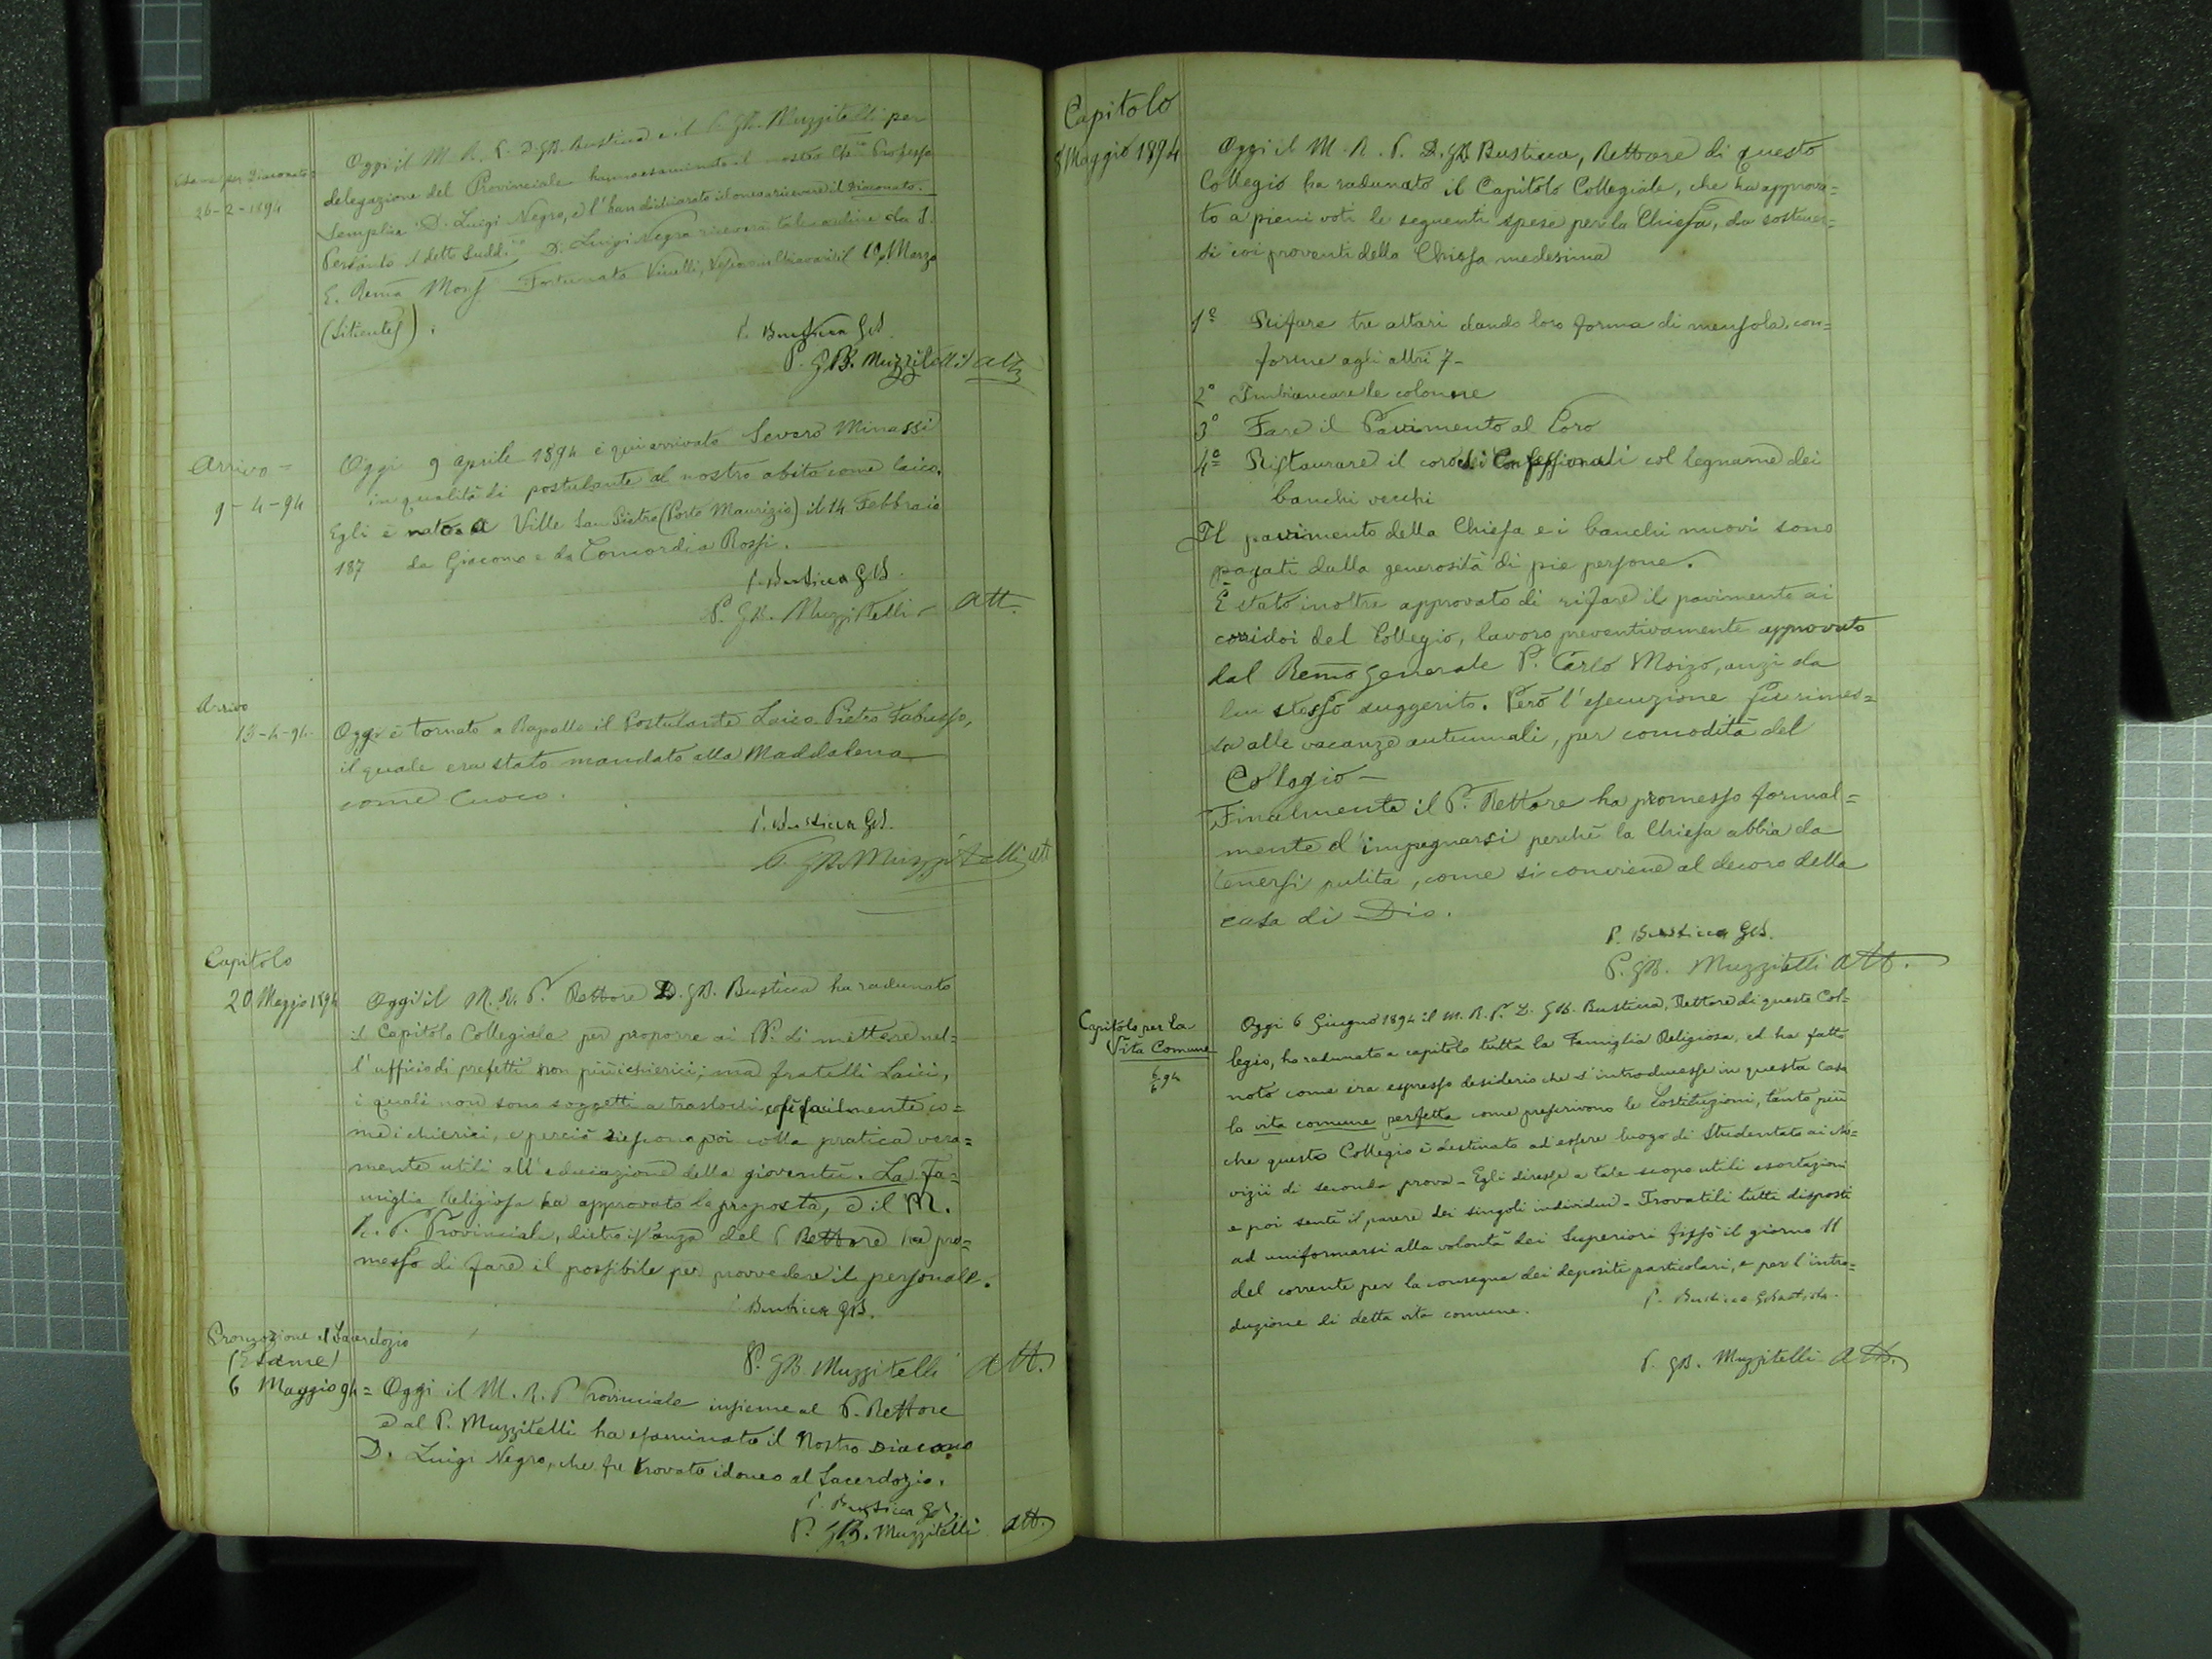 Esame per Diaconato =
26-2-1894
Oggi il M. R. P. D. GB. Bustica e il P. GB. Muzzitelli per
delegazione del Provinciale hanno esaminato il nostro Professo
Semplice D. Luigi Negro, e l'han dichiarato idoneo a ricevere il Diaconato.
Pertanto il detto Sudd. D. Luigi Negro riceverà tale ordine da S.
E. Rema Monsr Fortunato Vinelli, Vescovo in Chiavari il 10 Marzo
(Sitientes).
P. Bustica GB.
P. GB. Muzzitelli att
Arrivo =
9-4-94
Oggi 9 aprile 1894 è qui arrivato Severo Minassi
in qualità di postulante al nostro abito come laico.
Egli è nato a Ville San Pietro (Porto Maurizio) il 14 Febbraio
187 da Giacomo e da Concordia Rossi.
P. Bustica GB.
P. GB. Muzzitelli att.
Arrivo
13-4-94
Oggi è tornato a Rapallo il Postulante Laico Pietro Tabusso,
il quale era stato mandato alla Maddalena
come cuoco.
P. Bustica GB.
P. GB Muzzitelli att
Capitolo
20 Maggio 1894
Oggi il M. R. P. Rettore D. GB. Bustica ha radunato
il Capitolo Collegiale per proporre ai PP. di mettere nel=
l'ufficio di prefetti non più chierici; ma fratelli Laici,
i quali non sono soggetti a traslochi così facilmente co=
me i chierici, e perciò riescono poi colla pratica vera=
mente utili all'educazione della gioventù. La Fa=
miglia Religiosa ha approvato la proposta, e il M.
R. P. Provinciale, dietro istanza del P. Rettore ha pro=
messo di fare il possibile per provvedere il personale.
P. Bustica GB.
P. GB. Muzzitelli att.
Promozione al Sacerdozio
(Esame)
6 Maggio 94 = Oggi il M. R. P. Provinciale insieme al P. Rettore
e al P. Muzzitelli ha esaminato il Nostro Diacono
D. Luigi Negro, che fu trovato idoneo al Sacerdozio.
P. Bustica GB.
P. GB. Muzzitelli att.
Capitolo
8 Maggio 1894
Oggi il M. R. P. D. GB Bustica, Rettore di questo
Collegio ha radunato il Capitolo Collegiale, che ha approva=
to a pieni voti le seguenti spese per la Chiesa, da sostener=
si coi proventi della Chiesa medesima
1º Rifare tre altari dando loro forma di mensola, con=
forme agli altri 7-
2º Imbiancare le colonne
3º Fare il Pavimento al Coro
4º Ristaurare il coro di Confessionali col legname dei
banchi vecchi
Il pavimento della Chiesa e i banchi nuovi sono
pagati dalla generosità di pie persone.
È stato inoltre approvato di rifare il pavimento ai
corridoi del Collegio, lavoro preventivamente approvato
dal Remo Generale P. Carlo Moizo, anzi da
lui stesso suggerito. Però l'esecuzione fu rimes=
sa alle vacanze autunnali, per comodità del
Collegio-
Finalmente il P. Rettore ha promesso formal=
mente d'impegnarsi perchè la Chiesa abbia da
tenersi pulita, come si conviene al decoro della
casa di Dio.
P. Bustica GB.
P. GB. Muzzitelli att.
Capitolo per la
Vita Comune
6/6 94
Oggi 6 Giugno 1894 il M. R. P. D. GB. Bustica, Rettore di questo Col=
legio, ha radunato a capitolo tutta la Famiglia Religiosa, ed ha fatto
noto come era espresso desiderio che s'introducesse in questa Casa
la vita comune perfetta come prescrivono le Costituzioni, tanto più
che questo Collegio è destinato ad essere luogo di Studentato ai No=
vizii di seconda prova - Egli diresse a tale scopo utili esortazioni
e poi sentì il parere dei singoli individui - Trovatili tutti disposti
ad uniformarsi alla volontà dei Superiori fissò il giorno 11
del corrente per la consegna dei depositi particolari, e per l'intro=
duzione di detta vita comune.
P. Bustica GBattista.
P. GB. Muzzitelli att.